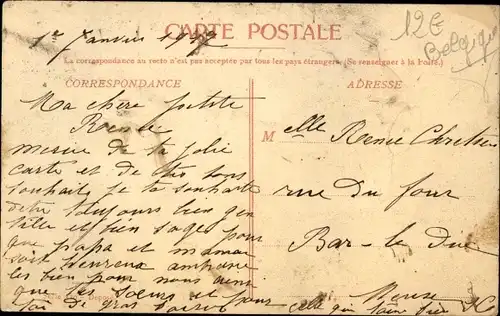 CARTE POSTALE
12€
Belgique
1er Janvier
La correspondance au recto n'est pas acceptée par tous les pays étrangers. (Se renseigner à la Poste.)
CORRESPONDANCE
ADRESSE
Ma chère petite
Renée
merci de ta jolie
carte et de tes bons
souhaits je te souhaite
d'être toujours bien gen
tille et bien sage pour
que papa et maman
soit heureux embrasse
les bien pour nous ainsi
que tes soeurs et pour
toi de gros baisers
Melle Renée Chretien
rue Du four
Bar-le Duc
Meuse
celle qui